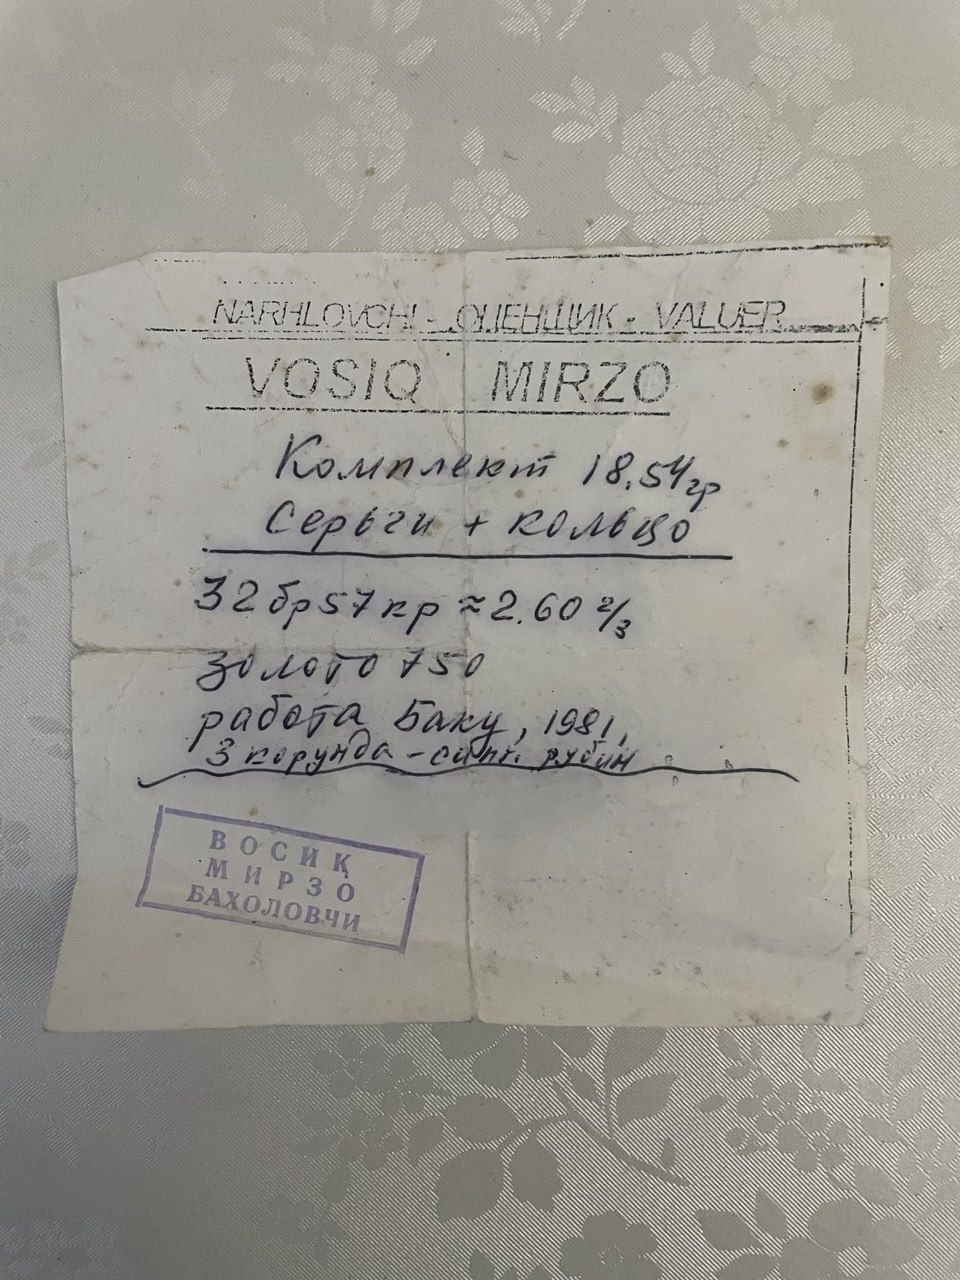 NARHLOVCHI - ОЦЕНЩИК - VALUER
VOSIQ MIRZO
Комплект 18.54гр
Серьги + кольцо
32 бр 57 кр ≈ 2.60 2/3
Золото 750
работа Баку, 1981,
3 корунда - синт. рубин
ВОСИҚ
МИРЗО
БАХОЛОВЧИ